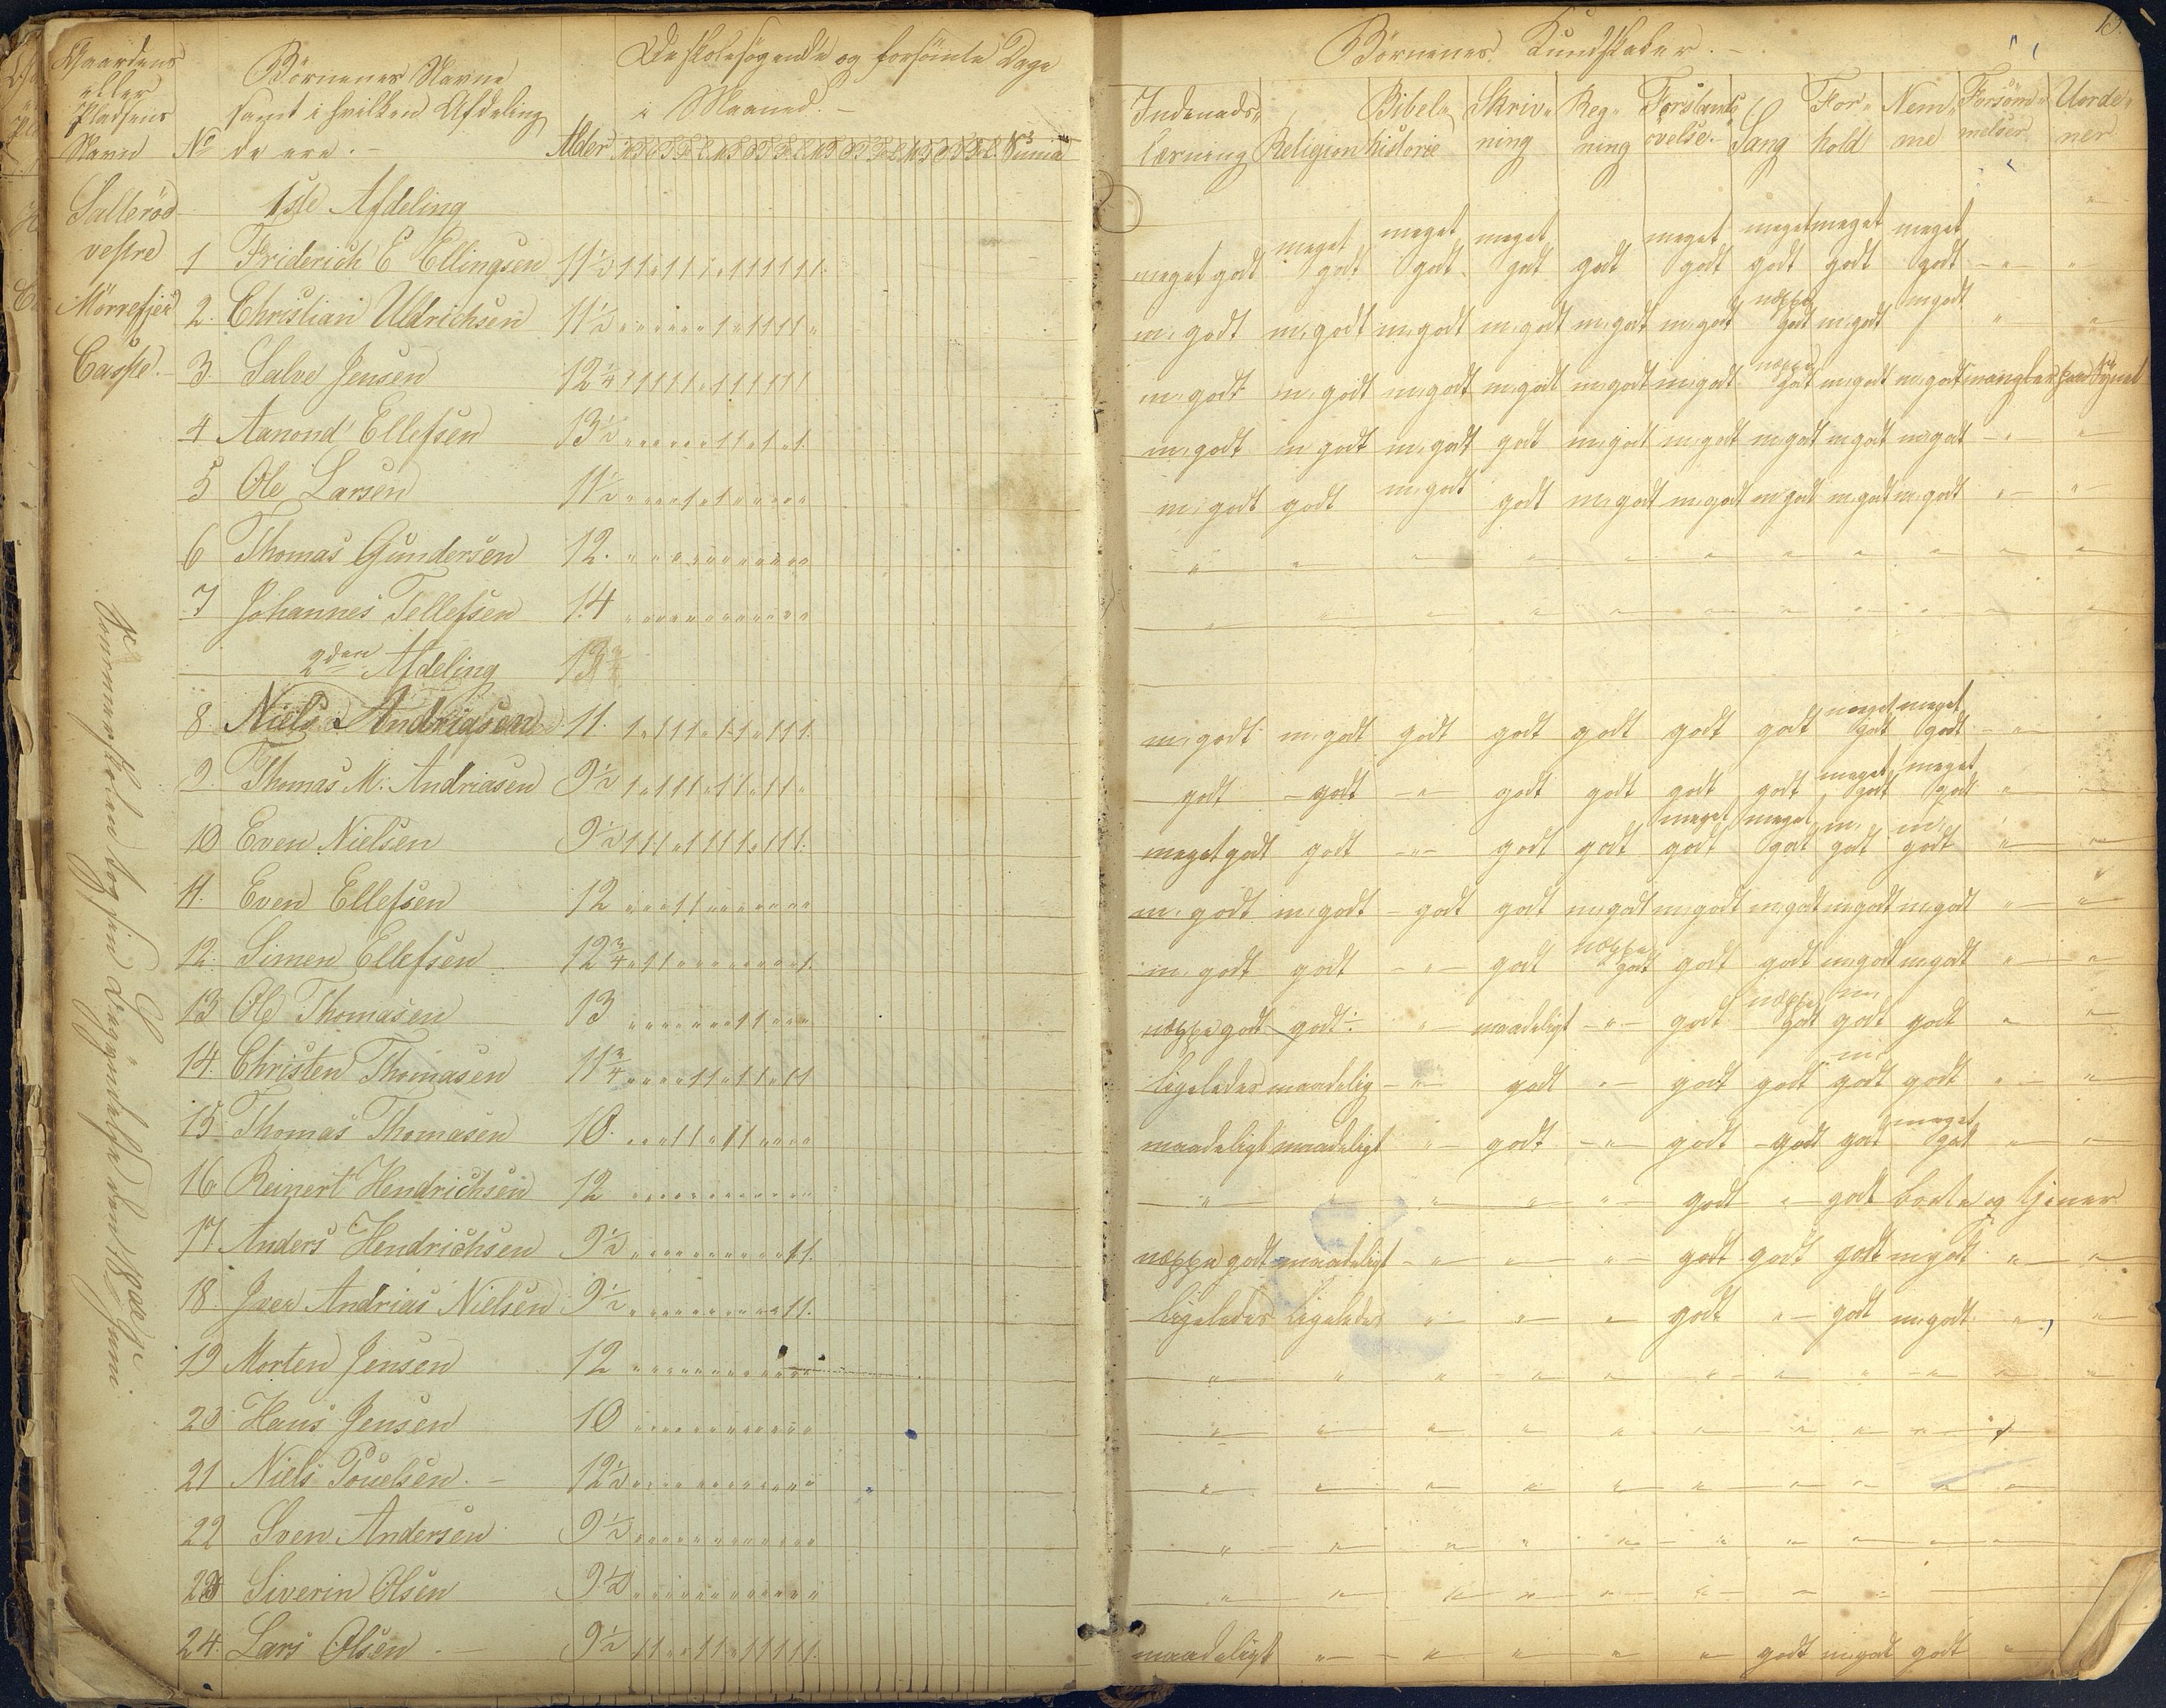 Gaardens eller Pladsens Navn
No
Börnenes Navne samt i hvilken Afdeling de ere.
Alder
De skolesögende og forsömte Dage i Maaned.
Summa
Salleröd vestre
Mörrefjeïr
Casse.
1ste Afdeling
1 Friderich E Ellingsen 11½
2. Christian Uldrichsen 11½
3. Salve Jensen 12¼
4 Aanond Ellefsen 13½
5 Ole Larsen 11½
6 Thomas Gundersen 12.
7 Johannes Tellefsen 14
2den Afdeling 13
8. Niels Andriasen 11.
9. Thomas M. Andriasen 9½
10 Even Nielsen 9½
11. Even Ellefsen 12
12. Simen Ellefsen 12¾
13 Ole Thomasen 13
14. Christen Thomasen 11¾
15 Thomas Thomasen 10.
16 Reinert Hendrichsen 12
17 Anders Hendrichsen 9½
18. Iver Andrias Nielsen 9½
19 Morten Jensen 12
20 Hans Jensen 10
21 Niels Pouelsen. 12½
22 Sven Andersen 9½
23 Siverin Olsen 9½
24. Lars Olsen 9½
Sommerskolen tog sin Begyndelse den 18de Juni.
13.
Börnenes Kundskaber.
Indenadslærning
Religion
Bibelhistorie
Skrivning
Regning
Forstandsövelse.
Sang
Forhold
Nemme
Forsömmelser
Uordener
meget godt meget godt meget godt meget godt godt meget godt meget godt meget godt meget godt " "
m. godt m. godt m. godt m. godt m. godt m. godt neppe godt m. godt m godt " "
m. godt m. godt m. godt m. godt m. godt m. godt neppe godt m. godt m. godt mangler paa Synet
m. godt m godt m. godt godt m. godt m. godt m. godt m. godt m. godt " "
m. godt godt m. godt godt m. godt m. godt m. godt m. godt m. godt " "
" " " " " " " " " " "
" " " " " " " " " " "
m. godt m. godt godt godt godt godt godt meget godt meget godt "
godt godt " godt godt godt godt meget godt meget godt " "
meget godt godt " godt godt meget godt meget godt m. godt m. godt " "
m. godt m. godt godt godt m. godt m. godt m. godt m. godt m. godt " "
m. godt godt " godt neppe godt godt godt m. godt m. godt " "
neppe godt godt " maadeligt " godt neppe godt m. godt godt " "
ligeledes maadelig " godt " godt godt m. godt godt " "
maadeligt maadeligt " godt " godt godt godt meget godt " "
" " " " " godt " godt borte og tjener
neppe godt maadeligt " " " godt godt godt m godt " "
ligeledes ligeledes " " " godt " godt m. godt " "
" " " " " " " " " " "
" " " " " " " " " "
" " " " " " " " " "
" " " " " " " " " "
" " " " " " " "
maadeligt " " " " " godt m. godt godt "